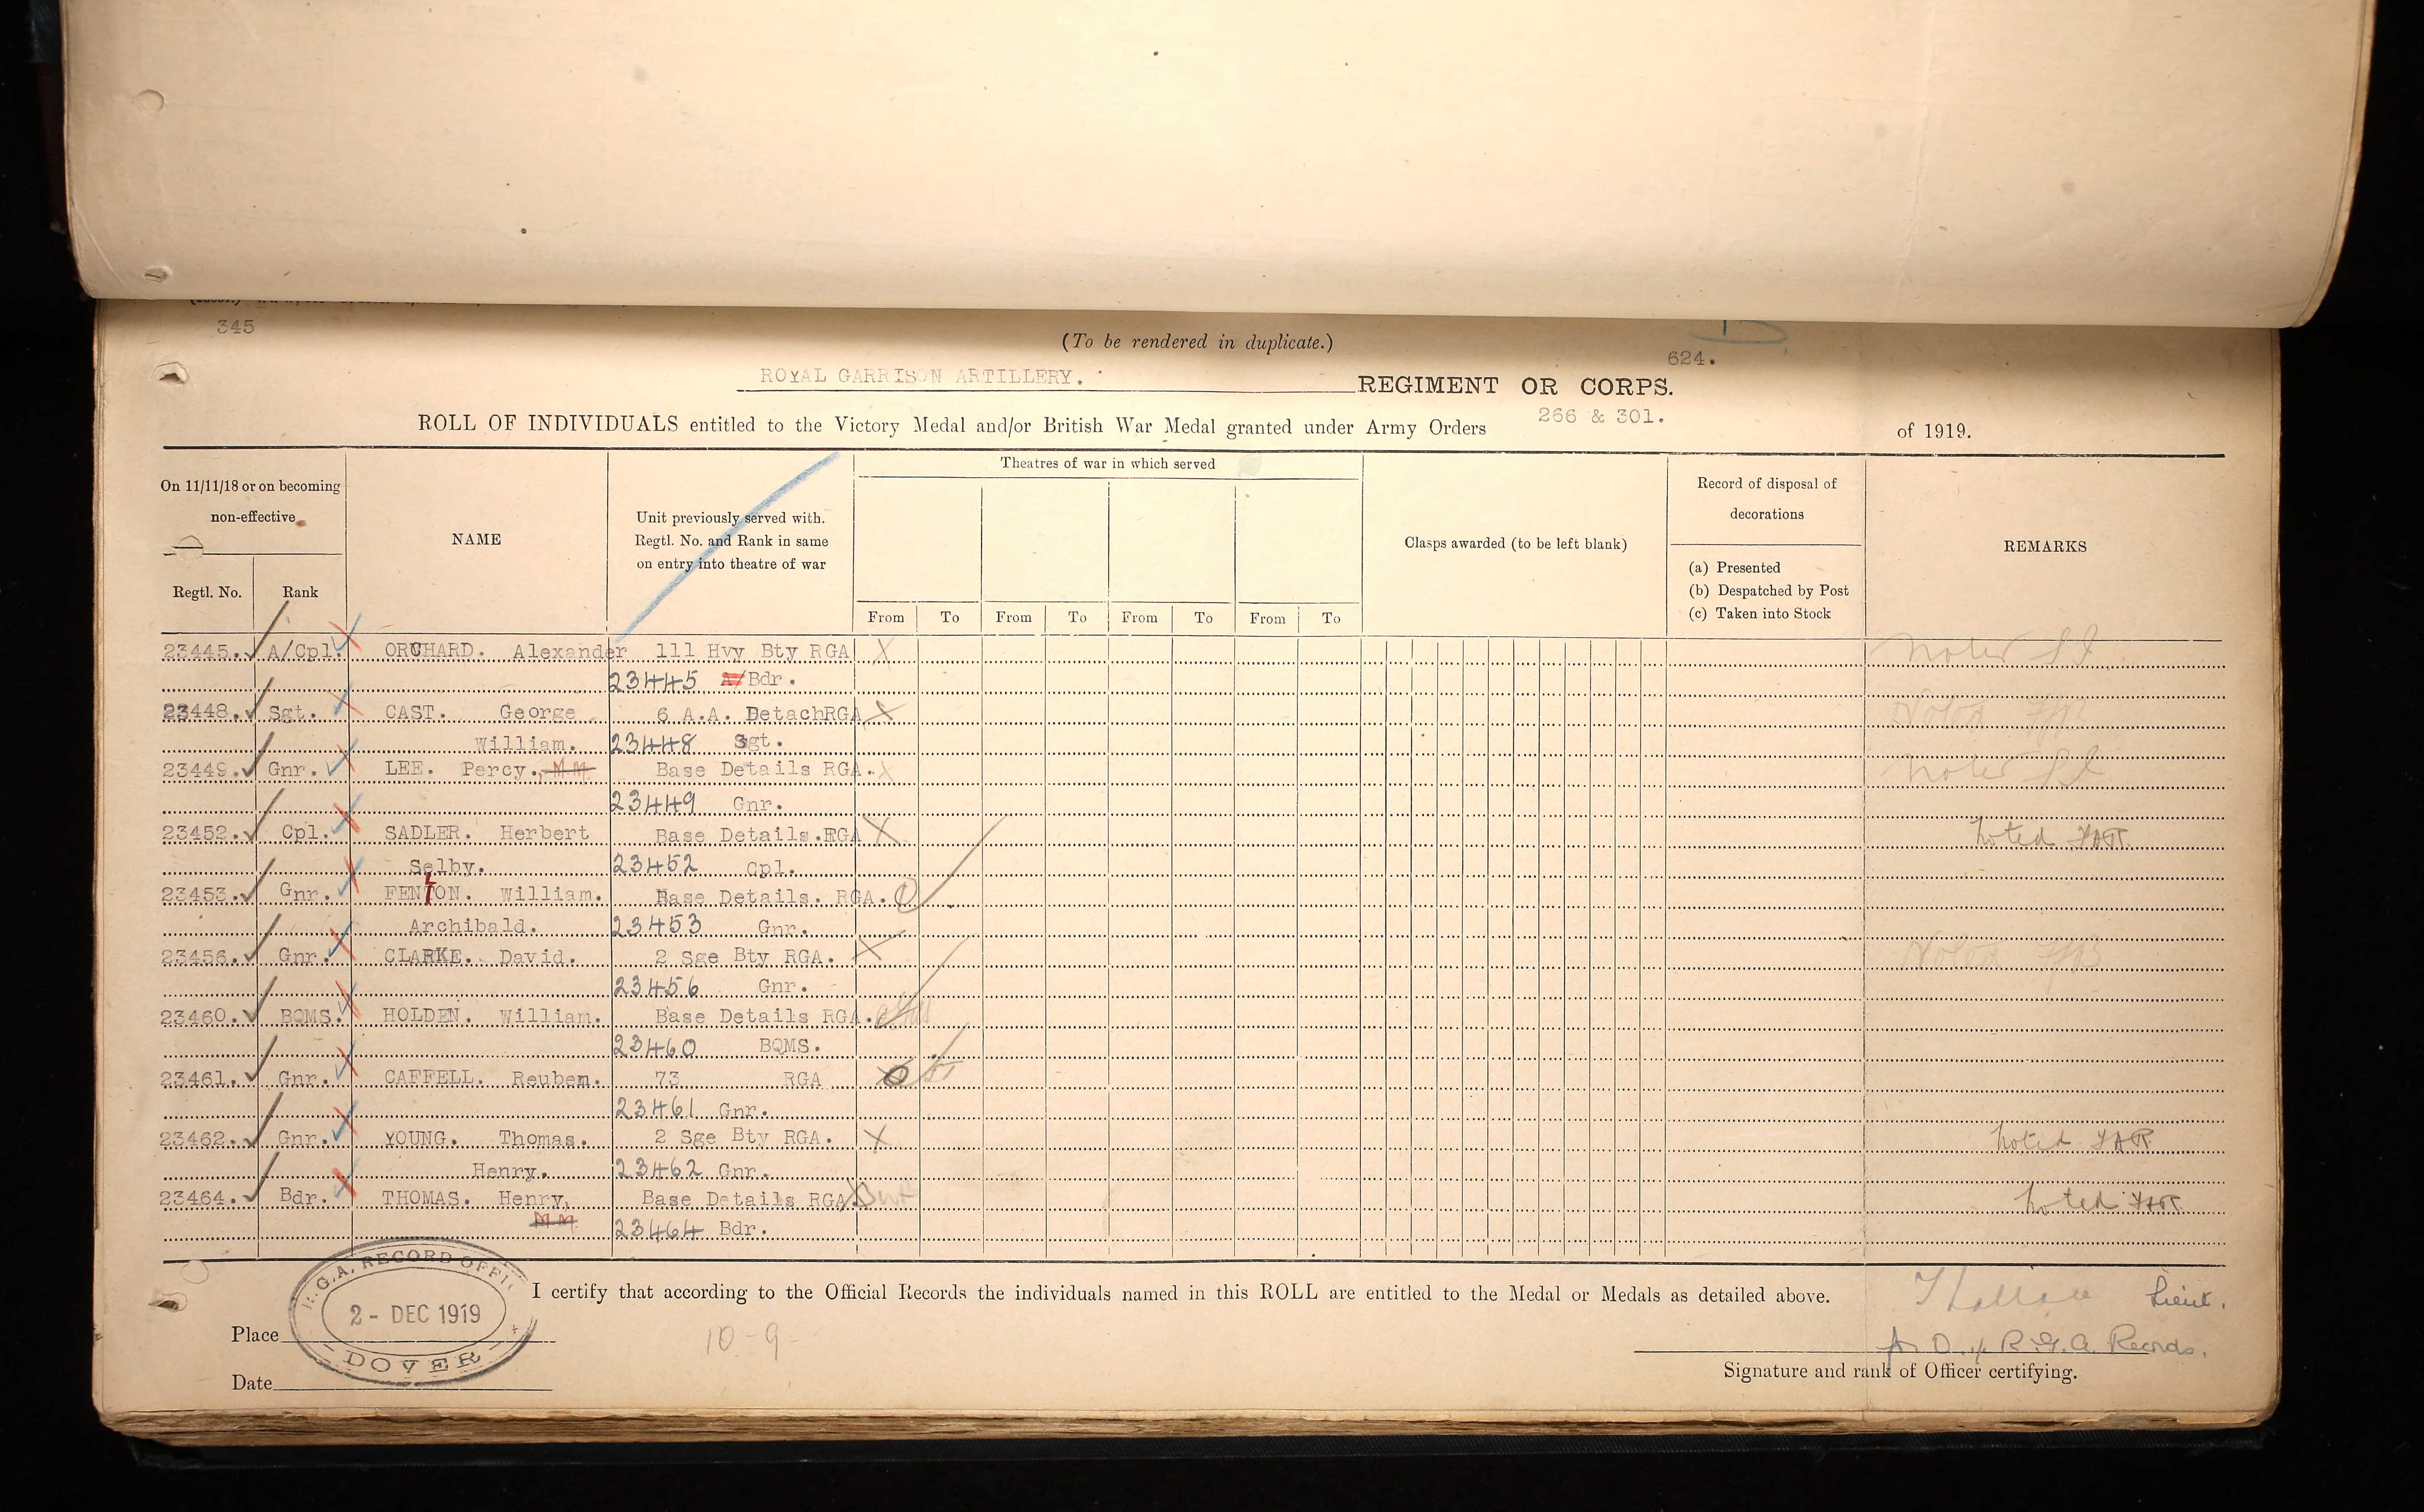 345
(To be rendered in duplicate.)
624.
ROYAL GARRISON ARTILLERY. REGIMENT OR CORPS.
ROLL OF INDIVIDUALS entitled to the Victory Medal and/or British War Medal granted under Army Orders 266 & 301. of 1919.
On 11/11/18 or on becoming non-effective
Regtl. No.
Rank
NAME
Unit previously served with. Regtl. No. and Rank in same on entry into theatre of war
Theatres of war in which served
From To From To From To From To
Clasps awarded (to be left blank)
Record of disposal of decorations
(a) Presented
(b) Despatched by Post
(c) Taken into Stock
REMARKS
23445. A/Cpl. ORCHARD. Alexander 111 Hvy Bty RGA
23445 A/Bdr.
23448. Sgt. CAST. George 6 A.A. DetachRGA Noted
William. 23448 Sgt.
23449. Gnr. LEE. Percy. M.M. Base Details RGA.
23449 Gnr.
23452. Cpl. SADLER. Herbert Base Details.RGA noted
Selby. 23452 Cpl.
23453. Gnr. FENTON. William. Base Details. RGA.
Archibald. 23453 Gnr.
23456. Gnr. CLARKE. David. 2 Sge Bty RGA. Noted
23456 Gnr.
23460. BQMS. HOLDEN. William. Base Details RGA.
23460 BQMS.
23461. Gnr. CAFFELL. Reuben. 73 RGA
23461 Gnr.
23462. Gnr. YOUNG. Thomas. 2 Sge Bty RGA. noted
Henry. 23462 Gnr.
23464. Bdr. THOMAS. Henry, Base Details RGA noted
M.M. 23464 Bdr.
I certify that according to the Official Records the individuals named in this ROLL are entitled to the Medal or Medals as detailed above.
Lieut.
R.G.A. RECORD OFFICE
2 - DEC 1919
DOVER
Place
10-9-
R.G.A. Records.
Date
Signature and rank of Officer certifying.